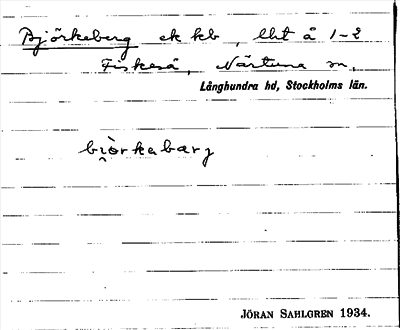 Björkeberg ek kb, lht å 1-2
Fiskeså, Närtuna sn,
Långhundra hd, Stockholms län.
bi̯òrkabærj
JÖRAN SAHLGREN 1934.